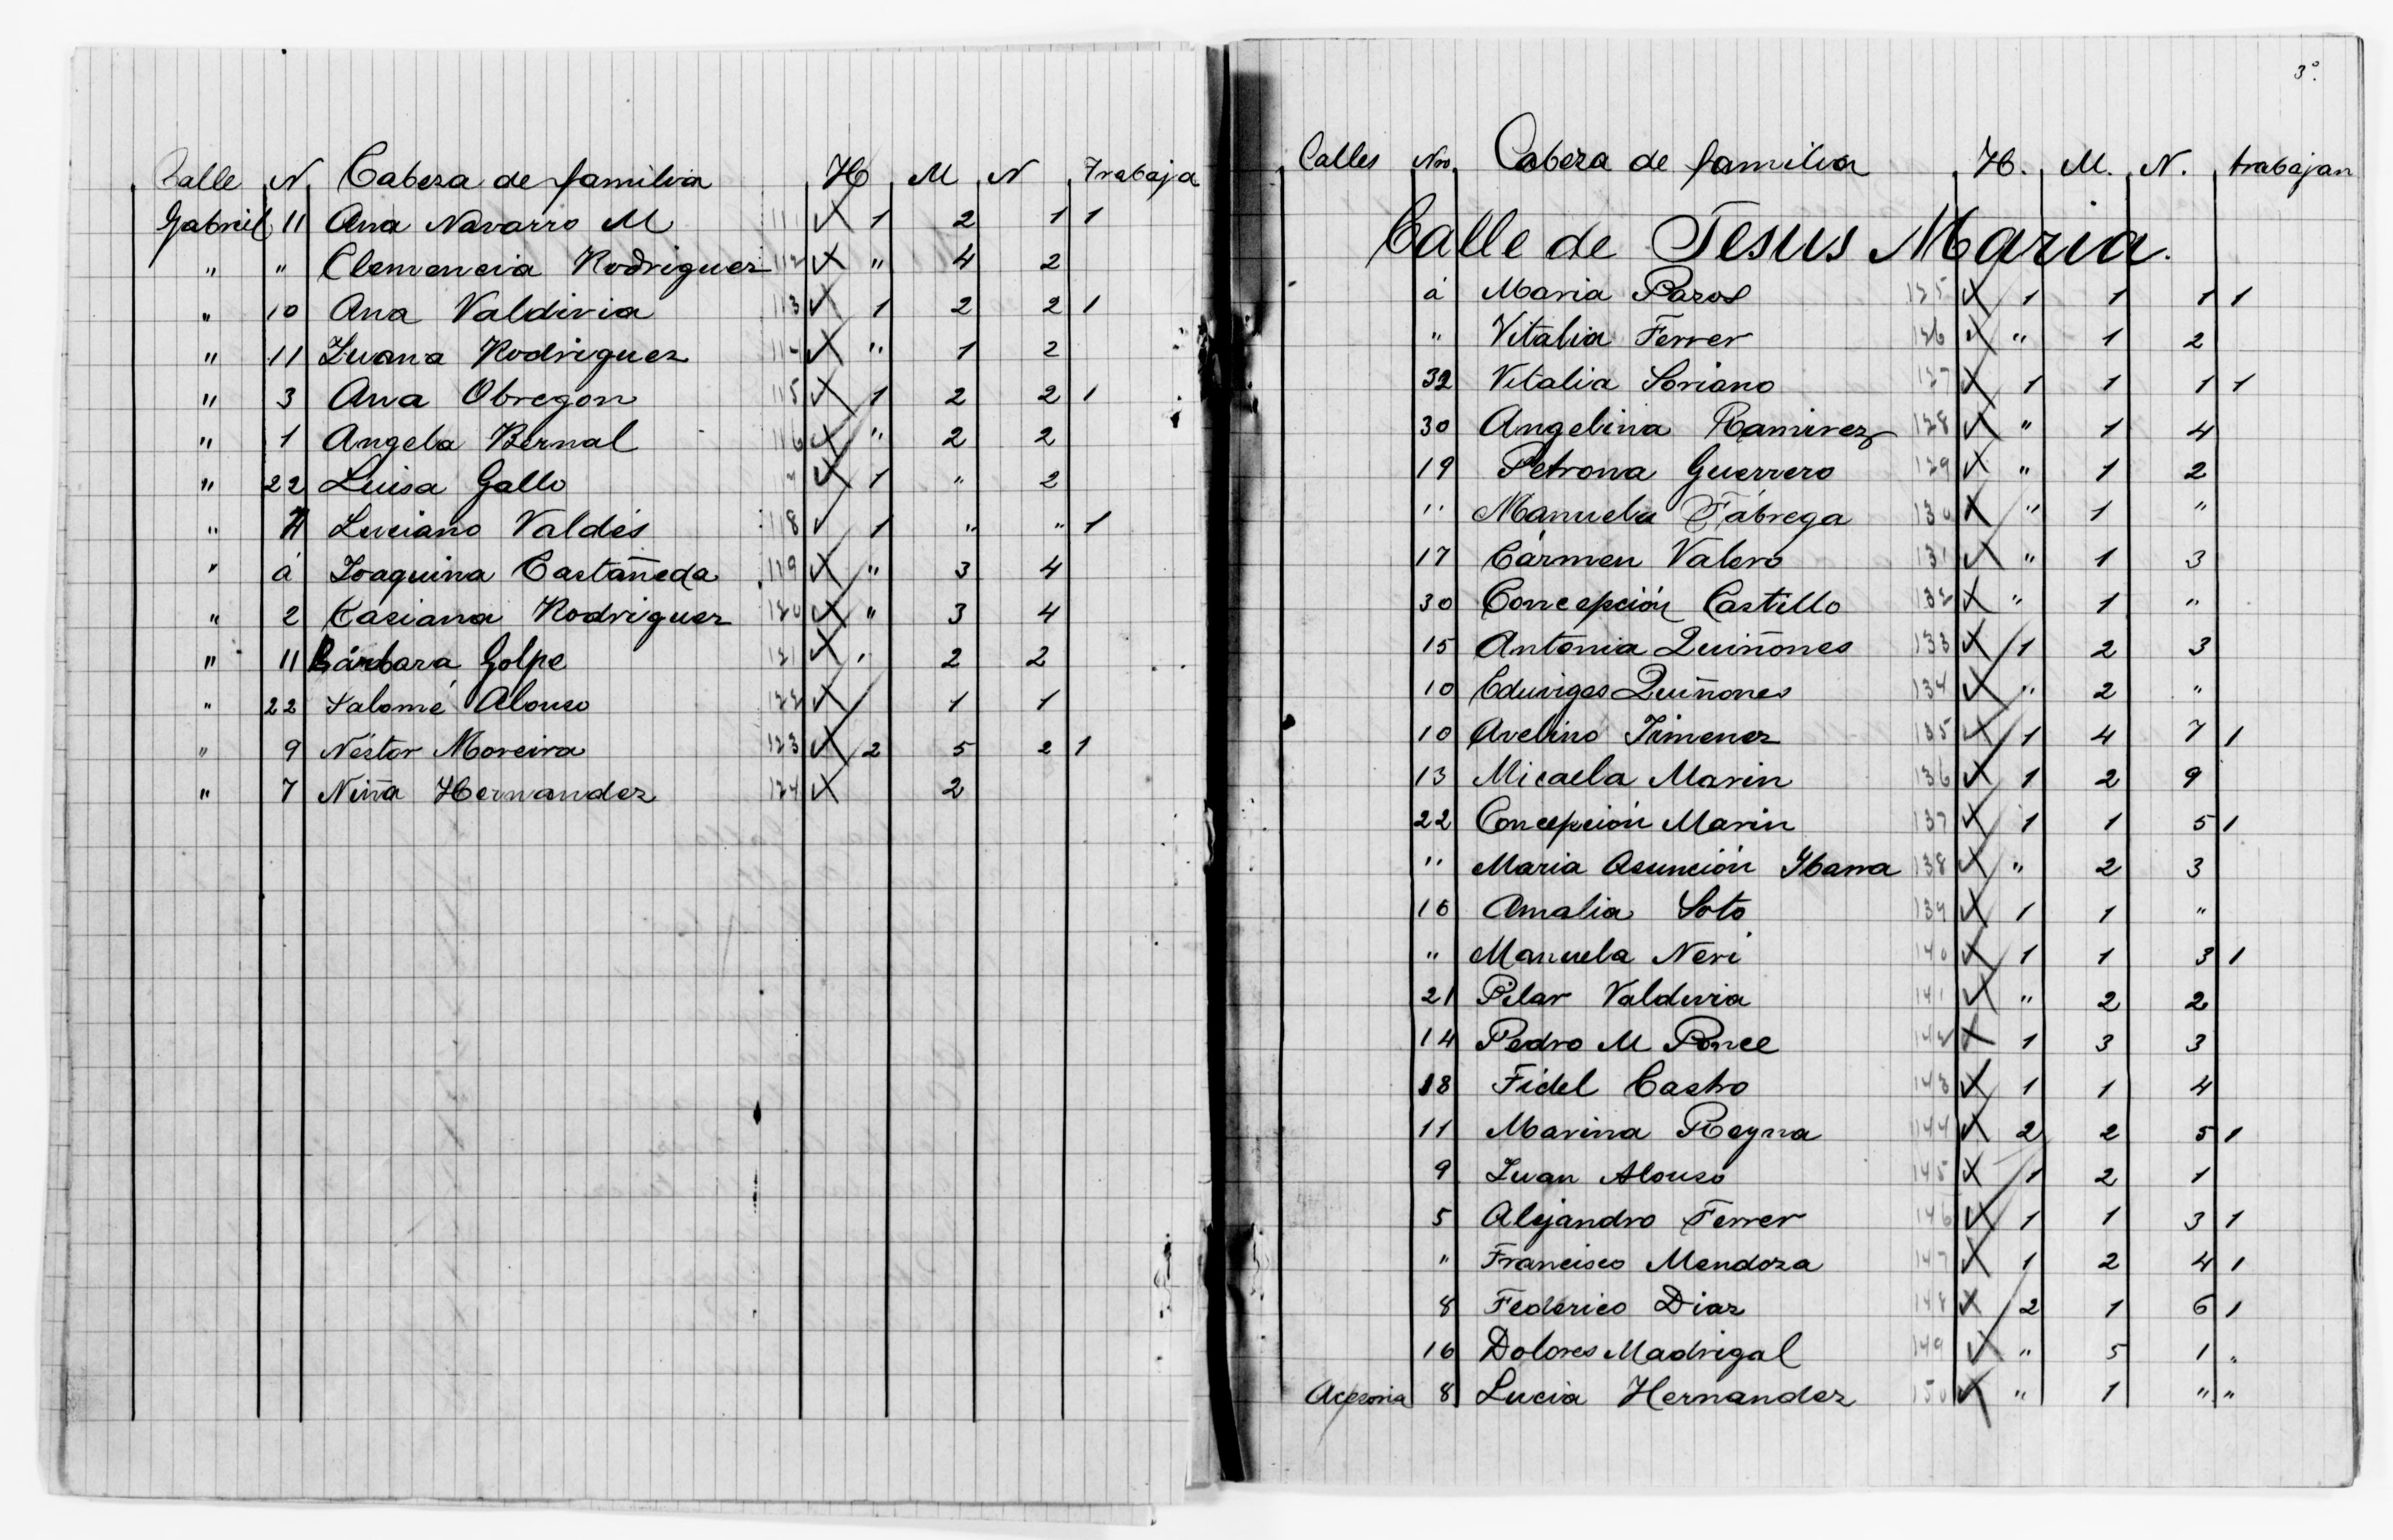 Calle N Cabeza de familia H M N Trabaja
Gabriel 11 Ana Navarro M 111 1 2 1 1
" " Clemencia Rodriguez 112 " 4 2
" 10 Ana Valdivia 113 1 2 2 1
" 11 Juana Rodriguez 114 " 1 2
" 3 Ana Obregon 115 1 2 2 1
" 1 Angela Bernal 116 " 2 2
" 22 Luisa Gallo 1 " 2
" Luciano Valdés 118 1 " " 1
" á Joaquina Castañeda 119 " 3 4
" 2 Casiana Rodriguez 120 " 3 4
" 11 Bárbara Golpe 121 " 2 2
" 22 Salomé Alonso 122 1 1
" 9 Néstor Moreira 123 2 5 2 1
" 7 Niña Hernandez 124 2
3º.
Calles Nro. Cabeza de familia H. M. N. trabajan
Calle de Jesus Maria.
á Maria Pazos 125 1 1 1 1
" Vitalia Ferrer 126 " 1 2
32 Vitalia Soriano 127 1 1 1 1
30 Angelina Ramirez 128 " 1 4
19 Petrona Guerrero 129 " 1 2
" Manuela Fábrega 130 " 1 "
17 Cármen Valero 131 " 1 3
30 Concepción Castillo 132 " 1 "
15 Antonia Quiñones 133 1 2 3
10 Eduviges Quiñones 134 " 2 "
10 Avelino Jimenez 135 1 4 7 1
13 Micaela Marin 136 1 2 9
22 Concepción Marin 137 1 1 5 1
" Maria Asunción Ybarra 138 " 2 3
16 Amalia Soto 139 1 1 "
" Manuela Neri 140 1 1 3 1
21 Pilar Valdivia 141 " 2 2
14 Pedro M Ponce 142 1 3 3
18 Fidel Castro 143 1 1 4
11 Marina Reyna 144 2 2 5 1
9 Juan Alonso 145 1 2 1
5 Alejandro Ferrer 146 1 1 3 1
" Francisco Mendoza 147 1 2 4 1
8 Federico Diaz 148 2 1 6 1
16 Dolores Madrigal 149 " 5 1 "
Acesoria 8 Lucia Hernandez 150 " 1 " "